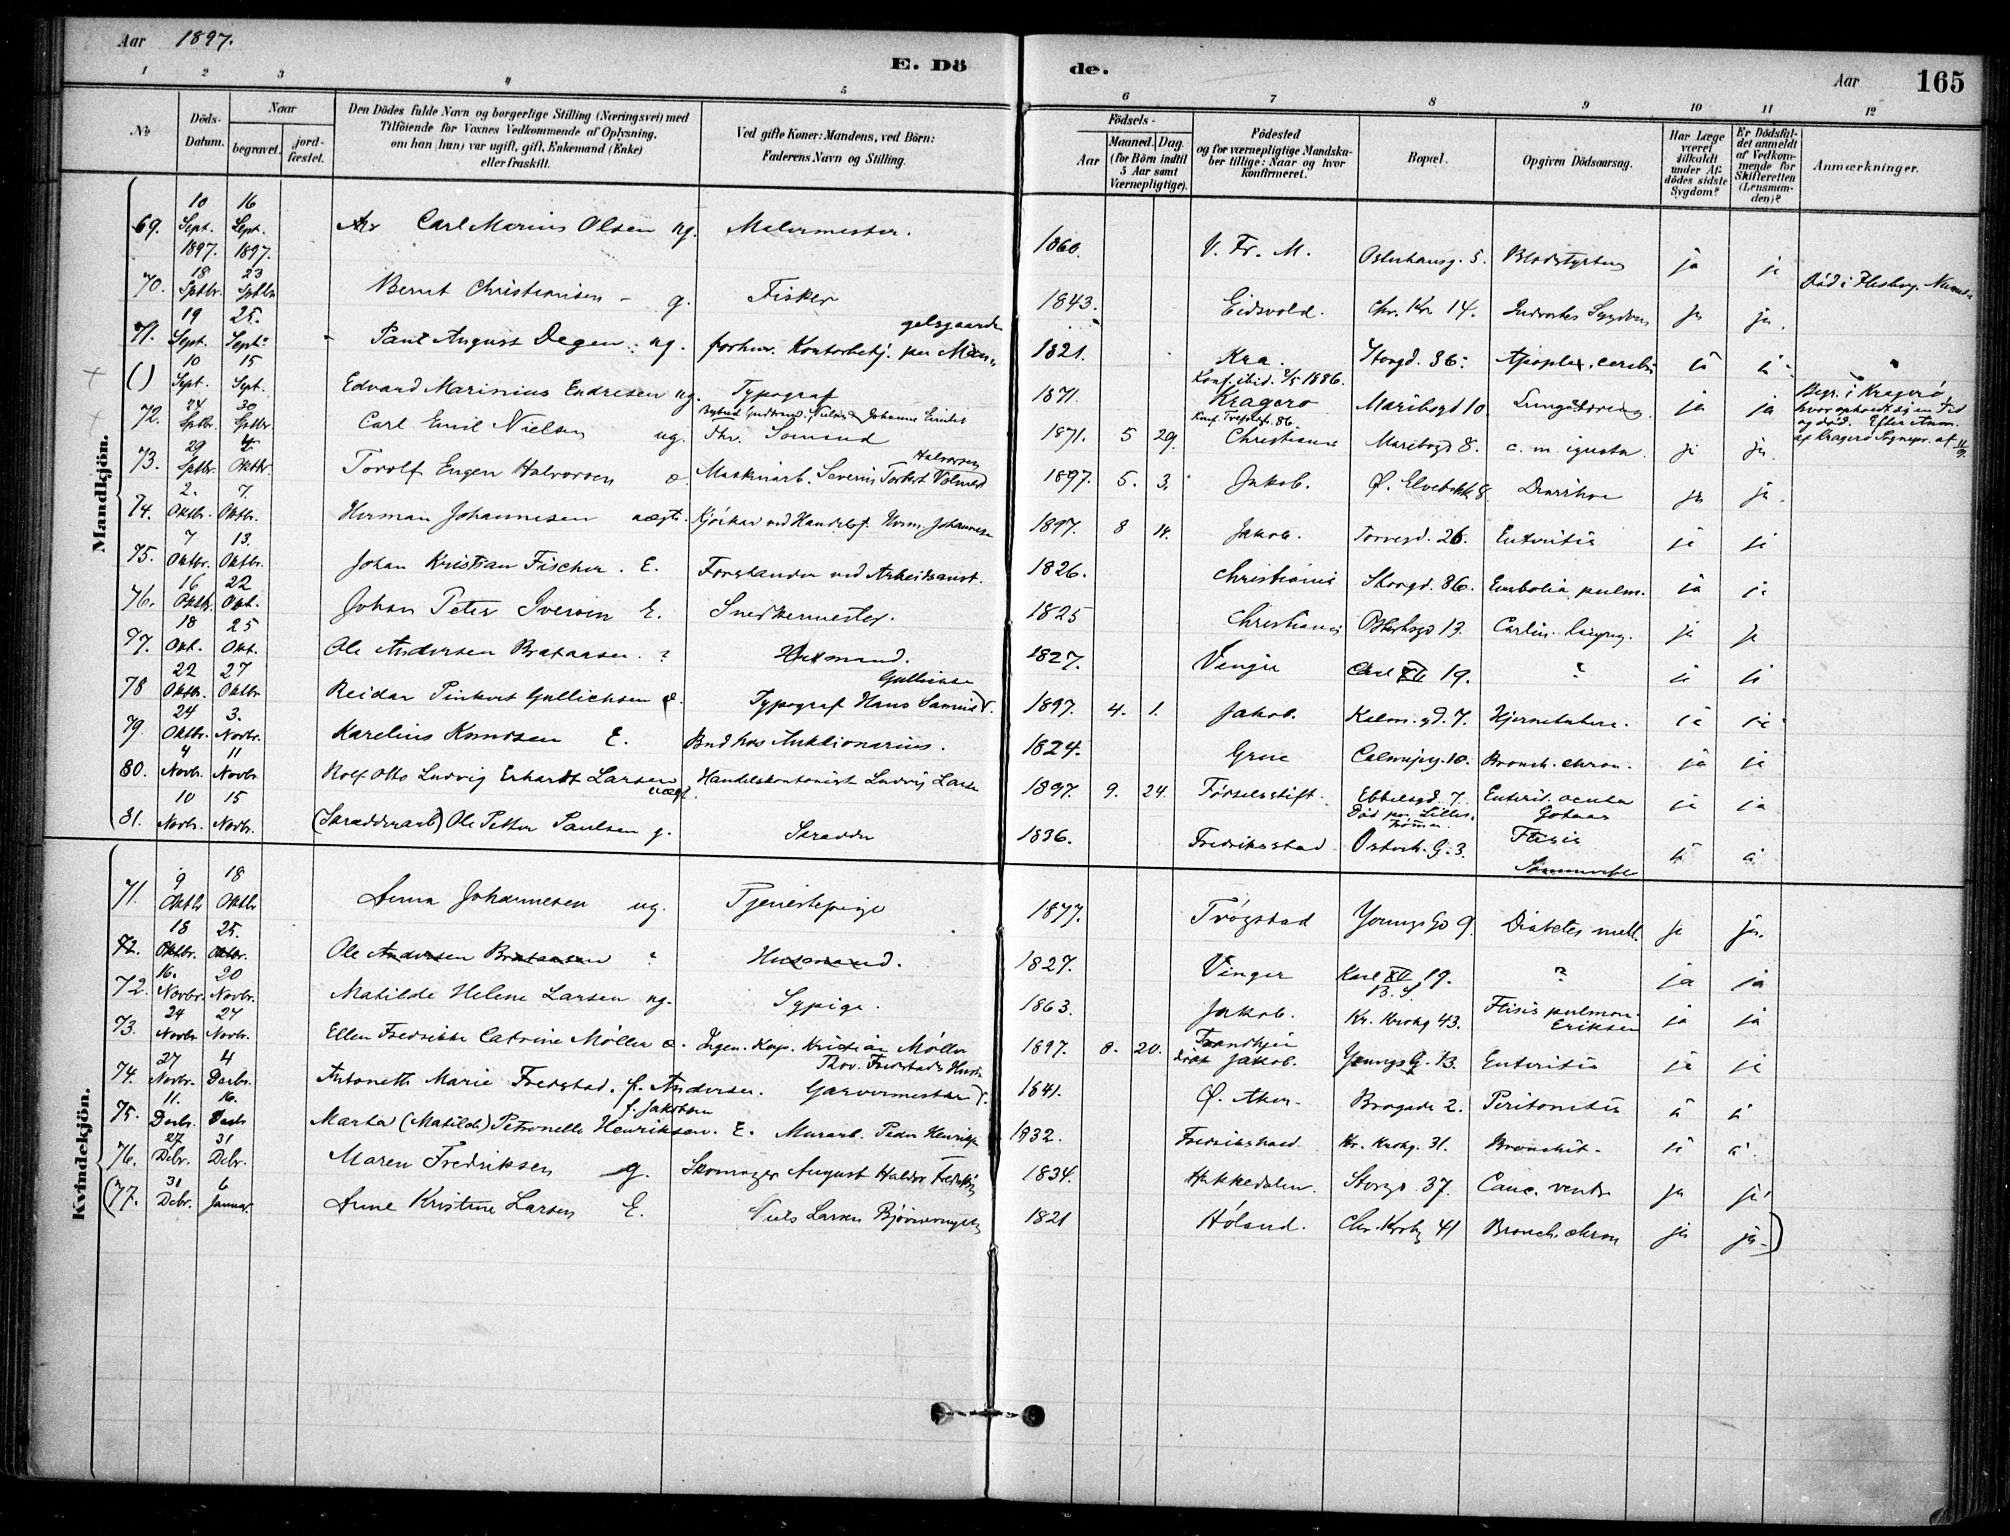 Aar 1897.
E. Dö de.
Aar 165
1 2 3 4 5 6 7 8 9 10 11 12
No
Döds-Datum.
Naar begravet. jordfæstet.
Den Dödes fulde Navn og borgerlige Stilling (Næringsvei) med Tilföiende for Voxnes Vedkommende af Oplysning, om han (hun) var ugift, gift, Enkemand (Enke) eller fraskilt.
Ved gifte Koner: Mandens, ved Börn: Faderens Navn og Stilling.
Födsels-
Aar Maaned. Dag. (for Börn indtil 5 Aar samt Værnepligtige).
Födested og for værnepligtige Mandskaber tillige: Naar og hvor konfirmeret.
Bopæl.
Opgiven Dödsaarsag.
Har Læge været tilkaldt under Afdödes sidste Sygdom?
Er Dödsfaldet anmeldt af Vedkommende for Skifteretten (Lensmanden)?
Anmærkninger.
Mandkjön.
69. 10 Sept. 1897. 16 Sept. 1897. Carl Marius Olsen ug. Malermester. 1860. V. Fr. M. Osterhausg. 5. Blodstyrtning ja ja Död i Flesberg
70. 18 Sptbr. 23 Sptbr Bernt Christiansen - g. Fisker 1843. Eidsvold. Chr. Kr. 14. ja ja.
71. 19 Sept. 25. Sept. Paul August Degen ug. forhv. Kontorbetj. 1821. Kra. Storgd. 36. Apoplex. cerebri ja ja
() 10 Sept. 15 Sept. Edvard Marinius Endresen ug. Typograf 1871. Konf. ibid. 2/5 1886. Kragerø Maribogd 10. ja ja Begr. i Kragerø, hvor opholdt sig en Tid og død.
72. 24 Sptbr. 30 Sptbr. Carl Emil Nielsen ug. Sømand 1871. 5 29. Christiania Maribogd 8. ja ja.
73. 29 Sptbr. 4 Oktbr. Torolf Eugen Halvorsen æ. Maskinarb. Severin Torkert Volmer Halvorsen 1897. 5. 3. Jakob. Ø. Elvebakke 8. Diarrhoe ja ja.
74. 2. Oktbr. 7. Oktbr. Herman Johannesen uægte. Kjørekar ved Handelsf. Herm. Johannesen 1897. 8 14. Jakob. Torvegd. 26. Enteritis ja ja
75. 7 Oktbr. 13. Oktbr. Johan Kristian Fischer. E. Forstander ved Arbeidsanst. 1826. Christiania Storgd. 36. Embolia pulm. ja ja
76. 16 Oktbr. 22 Okt. Johan Peter Iversen E. Snedkermester. 1825 Christiania 13. ja ja
77. 18 Okt. 25 Okt. Ole Andersen Brataasen. ? Husmand. 1827. Vinger Carl XII 19. ? ja ja
78 22 Oktbr. 27 Oktbr Reidar Gullichsen æ. Typograf Hans Samuel Gullichsen 1897. 4. 1. Jakob. gd. 7. ja ja
79. 24 Oktbr. 3. Novbr. Karelius Knudsen E. Bud hos Auktionarius. 1824. Grue Calmeyerg. 10. Bronch. chron. ja ja
80. 4 Novbr. 11 Novbr. Rolf Otto Ludvig Erhardt Larsen uægt. Handelskontorist Ludvig Larsen 1897. 9. 24. Fødselsstift. Ebbelsgd. 7. Enterit. acuta ja ja
81. 10 Novbr. 15 Novbr. (Skrædderarb) Ole Petter Paulsen g. Skrædder 1836. Fredrikstad Osterh. G. 3. Ftisis ja ja
Kvindekjön.
71. 9 Oktbr 18 Oktbr Anna Johannesen ug. Tjenestepige 1877. Trögstad Youngs Gd 9. Diabetes mell. ja ja.
72. 18 Oktbr. 25. Oktbr. Ole Andersen Brataasen ? Husmand. 1827. Vinger Karl XII 19. ? ja ja
72. 16. Novbr. 20 Novbr. Matilde Helene Larsen ug. Sypige. 1863. Jakob. Kr. Krohg 43. Ftisis pulmon. ja ja
73. 24 Novbr 27 Novbr. Ellen Fredrikke Catrine Møller æ. Kristian Møller 1897. 8. 20. Trondhjem døbt Jakob. Youngs G. 13. Enteritis ja ja
74. 27 Novbr. 4 Decbr. Antonette Marie Fredstad. f. Andersen. Garvermester Thov. Fredstads Hustru 1841. Ø. Aker. Brogade 2. Peritonitis ja ja
75. 11. Decbr. 16. Decbr. Marte (Matilde) Petronelle Henriksen. f. Jakobsen E. Murarb. Peder Henriksen 1832. Fredrikshald. Kr. Krohg. 31. Bronchit. ja ja.
76. 27 Debr. 31 Debr. Maren Fredriksen g. Skomager August Haldor Fredriksen 1834. Hakkedalen. Storgd. 37. Canc. ventr. ja ja
(77. 31 Debr. 6 Januar. Anne Kristine Larsen E. Niels Larsen 1821 Høland. Chr. Krohg 41 Bronch. chron ja ja)